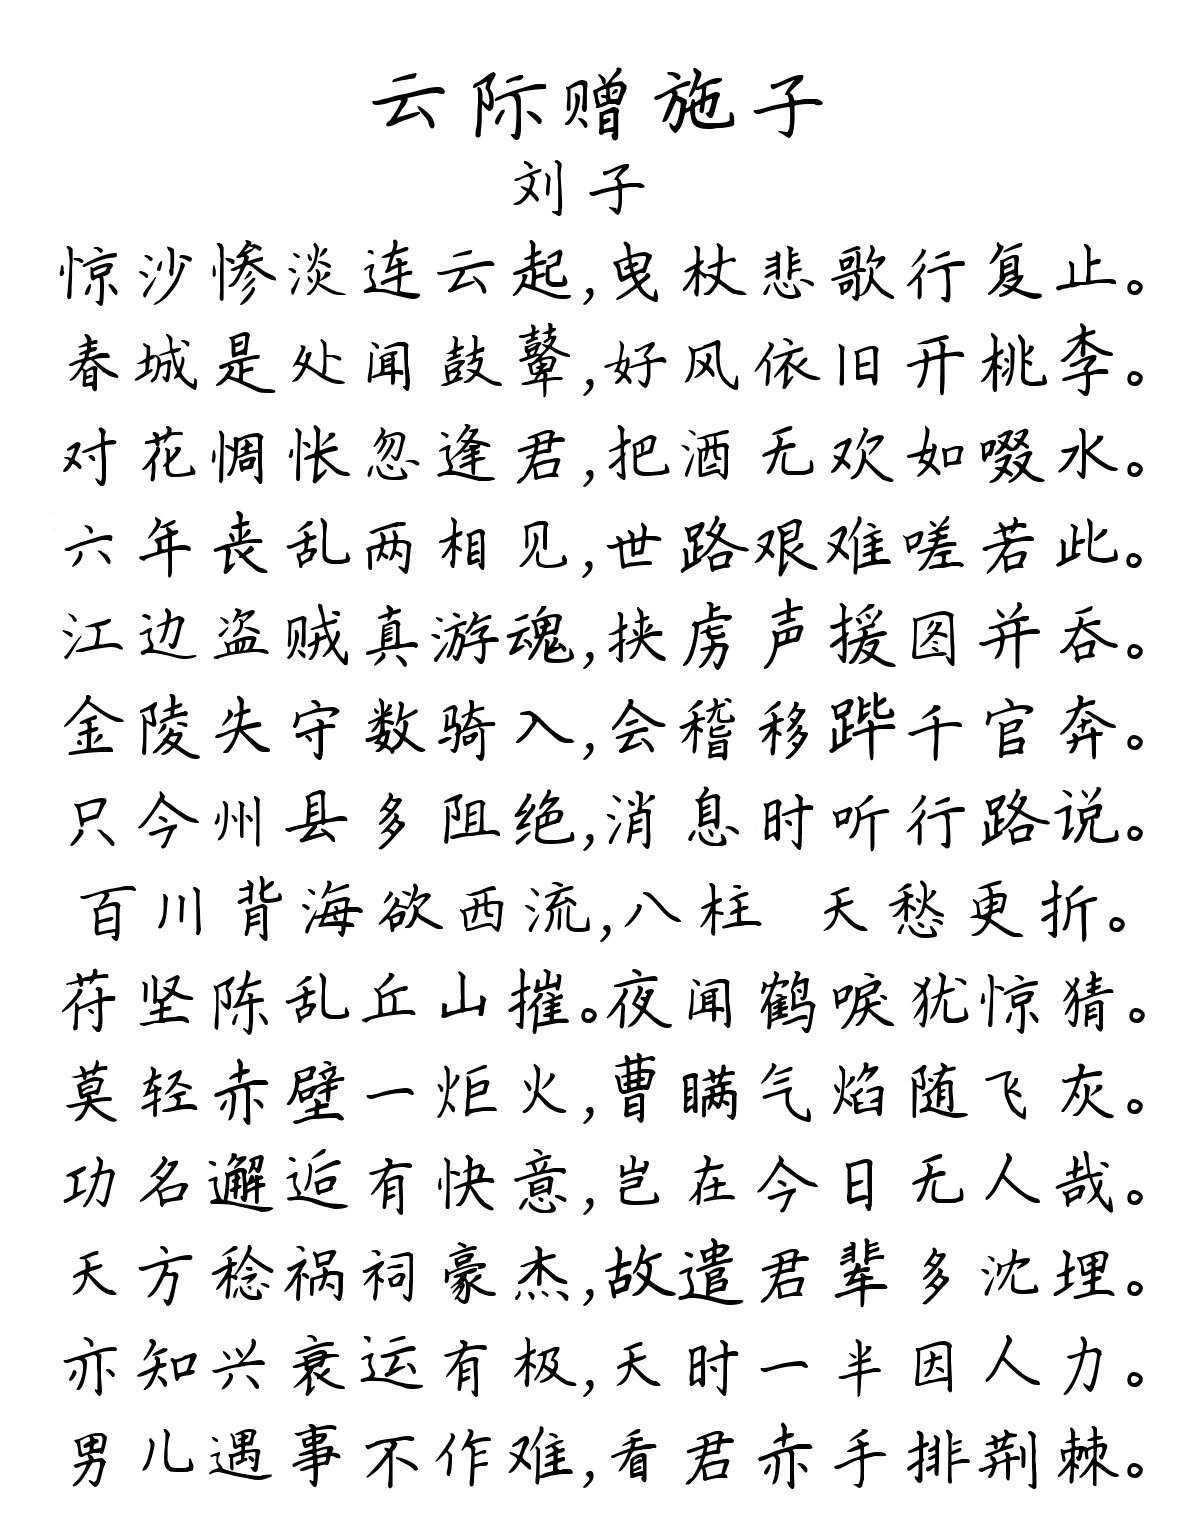 云际赠施子
刘子
惊沙惨淡连云起,曳杖悲歌行复止。
春城是处闻鼓鼙,好风依旧开桃李。
对花惆怅忽逢君,把酒无欢如啜水。
六年丧乱两相见,世路艰难嗟若此。
江边盗贼真游魂,挟虏声援图并吞。
金陵失守数骑入,会稽移跸千官奔。
只今州县多阻绝,消息时听行路说。
百川背海欲西流,八柱 天愁更折。
苻坚陈乱丘山摧。夜闻鹤唳犹惊猜。
莫轻赤壁一炬火,曹瞒气焰随飞灰。
功名邂逅有快意,岂在今日无人哉。
天方稔祸祠豪杰,故遣君辈多沈埋。
亦知兴衰运有极,天时一半因人力。
男儿遇事不作难,看君赤手排荆棘。